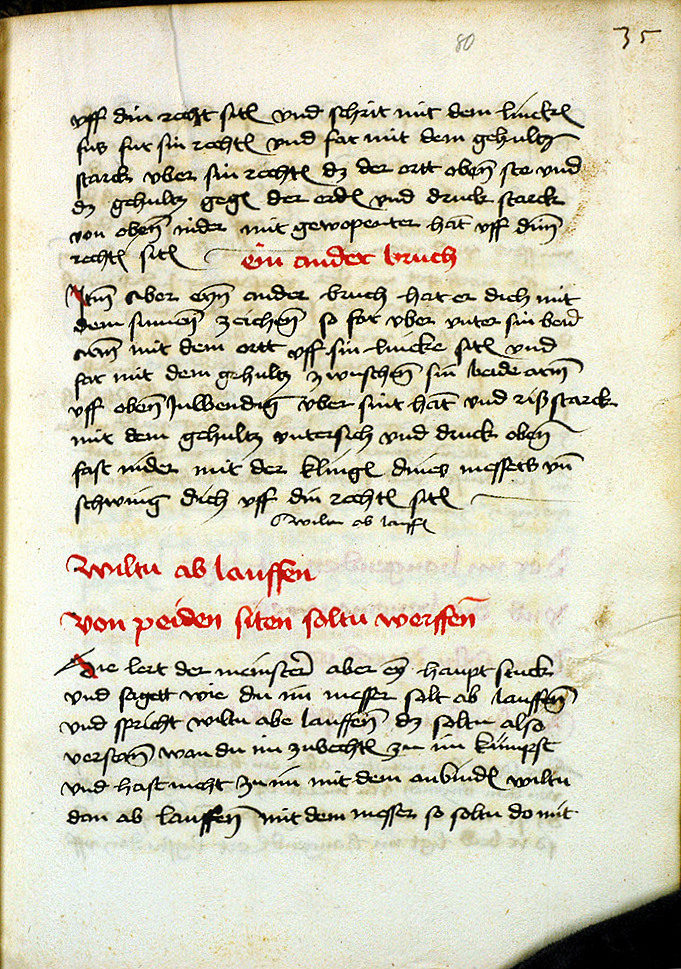 80
35
vff din recht sitē vnd schrit mit dem linckē
fus fur sin rechtē vnd far mit dem gehultz
starck vber sin rechtē dz der ortt obeñ ste vnd
dz gehultz gegē der erdē vnd druck starck
von obeñ nider mit gewopenter hāt vff dinē
rechtē sitē
ein ander bruch
Itm̄ aber eyn ander bruch hat er dich mit
dem sinneñ zeicheñ so far vber vnter sin beid
arm̄ mit dem ortt vff sin lincke sitē vnd
far mit dem gehultz zwuscheñ sin beide arm̄
vff obeñ Inwendig vber sint hāt vnd riß starck
mit dem gehultz vntersich vnd druck obeñ
fast nider mit der klingē dines messers vn̄
schwing dich vff din rechtē sitē
wiltu ab lauffē
Wiltu ab lauffen
Von peiden siten soltu werffen̄
Hie lert der meinster aber eȳ haupt stuck
vnd sagett wie du im messer solt ab lauffeñ
vnd spricht wiltu abe lauffeñ dz soltu also
versteñ wan du im zuvechtē zu im kümpst
vnd hast nicht zu im mit dem anbindē wiltu
dan ab lauffeñ mit dem messer so soltu do mit